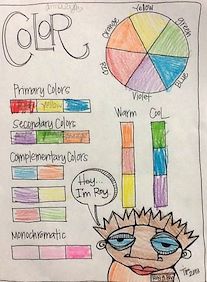 COLOR
Yellow
Orange
green
Red
blue
Violet
Primary Colors
YELLOW
Secondary Colors
Warm
Cool
Complementary Colors
Hey...
I'm Roy.
Monochromatic